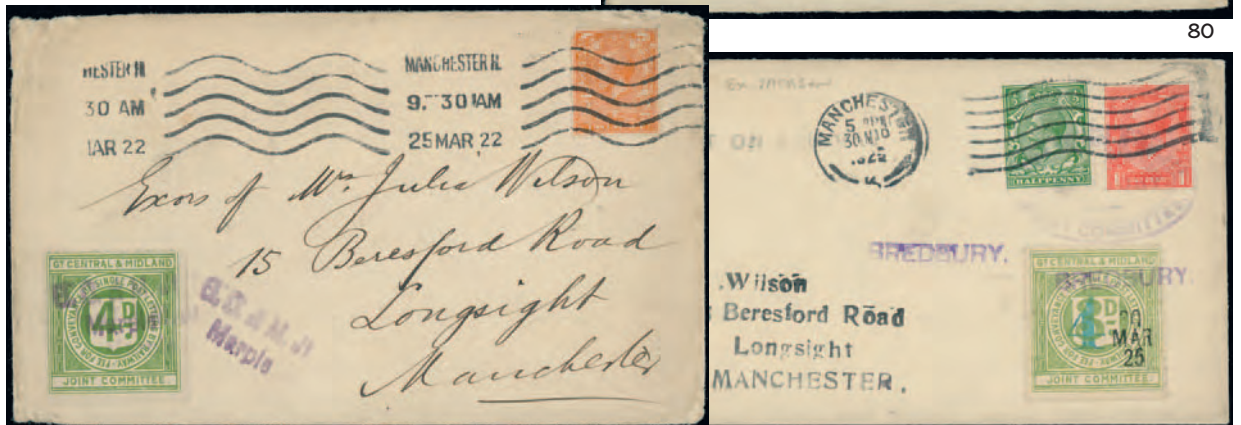 80
HESTER N.
30 AM
IAR 22
MANCHESTER N.
9. 30 AM
25 MAR 22
Exors of Mrs. Julia Wilson
15 Beresford Road
Longsight
Manchester
GT CENTRAL & MIDLAND
4D
JOINT COMMITTEE.
G.C. & M. Jt
Marple
MANCHESTER
5 PM
1922
HALFPENNY
BREDBURY.
BREDBURY.
COMMITTEE
.Wilson
Beresford Road
Longsight
MANCHESTER.
GT CENTRAL & MIDLAND
4
3D
20
MAR
25
JOINT COMMITTEE.